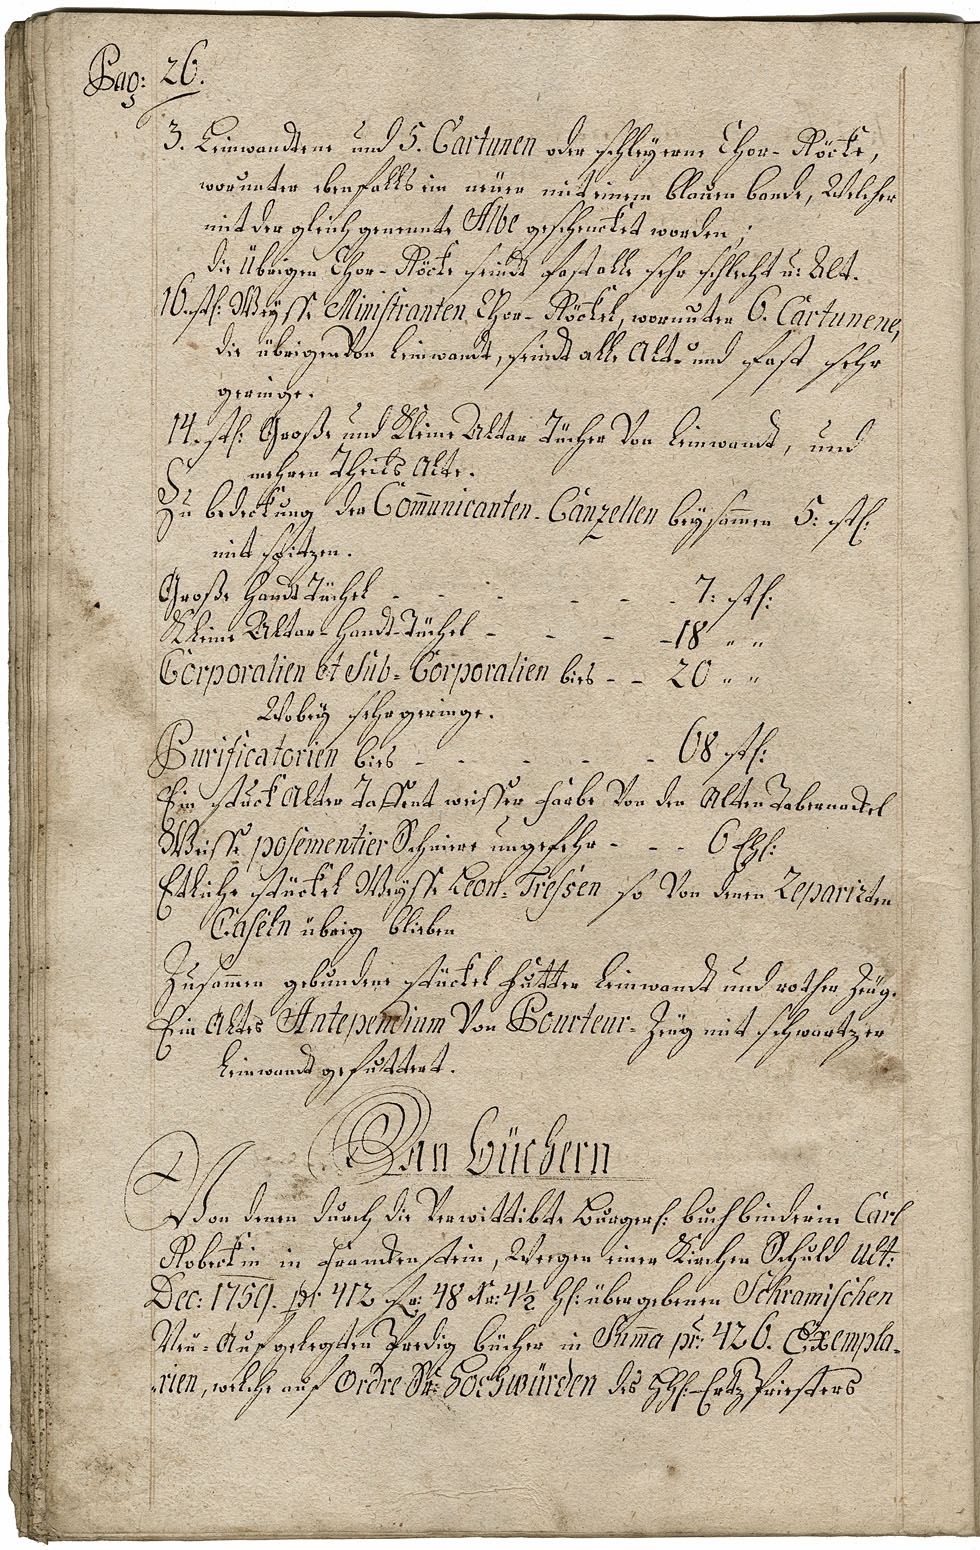 Pag: 26.
3. Leinwandtene und 5. Cartunen oder schleyerne Chor-Röcke,
worunter ebenfalls ein neüer mit einem blauen bande, Welcher
mit der gleich genennte Albe geschencket worden;
die übrigen Chor-Röcke seindt fast alle sehr schlecht u: Alt.
16. stk: Weysse Ministranten Chor-Röckel, worunter 6. Cartunene,
die übrigen Von Leinwandt, seindt alle Alt- und fast sehr
geringe.
14. stk: Große und Kleine Altar Tücher Von Leinwandt, und
mehren Theils Alte.
Zu bedeckung der Com̄unicanten-Canzellen beysam̄en 5: stk:
mit spitzen.
Große Handt Tüchel - - - - - - 7: stk:
Kleine Altar-Handt-Tüchel - - - - - 18 " "
Corporalien et Sub-Corporalien bies - - 20 " "
Wobey sehr geringe.
Purificatorien bies - - - - - 68 stk:
Ein stuck Alter Taffent weisser farbe Von den Alten Tabernackel
Weisse posementier Schniere ungefehr - - - 6 Ehl:
Etliche stückel Weysse Leon-Tressen so Von denen Reparirten
Caseln übrig blieben
Zusam̄en gebundene stückel futter Leinwandt und rother Zeüg.
Ein Altes Antependium Von Pourteur-Zeüg mit schwartzer
Leinwandt gefuttert.
An Büchern
Von denen durch die Verwittibte Burgerl: buchbinderin Carl
Robeckin in Franckenstein, Wegen einer Kirchen Schuld Ult:
Dec: 1759. pr: 412 fl: 48 Kr: 4½ hl: übergebenen Schramischen
Neu-Aufgelegten Predig bücher in Sum̄a pr: 426. Exempla-
rien, welche auf Ordre Sr: Hochwürden des HH: Ertz Priesters